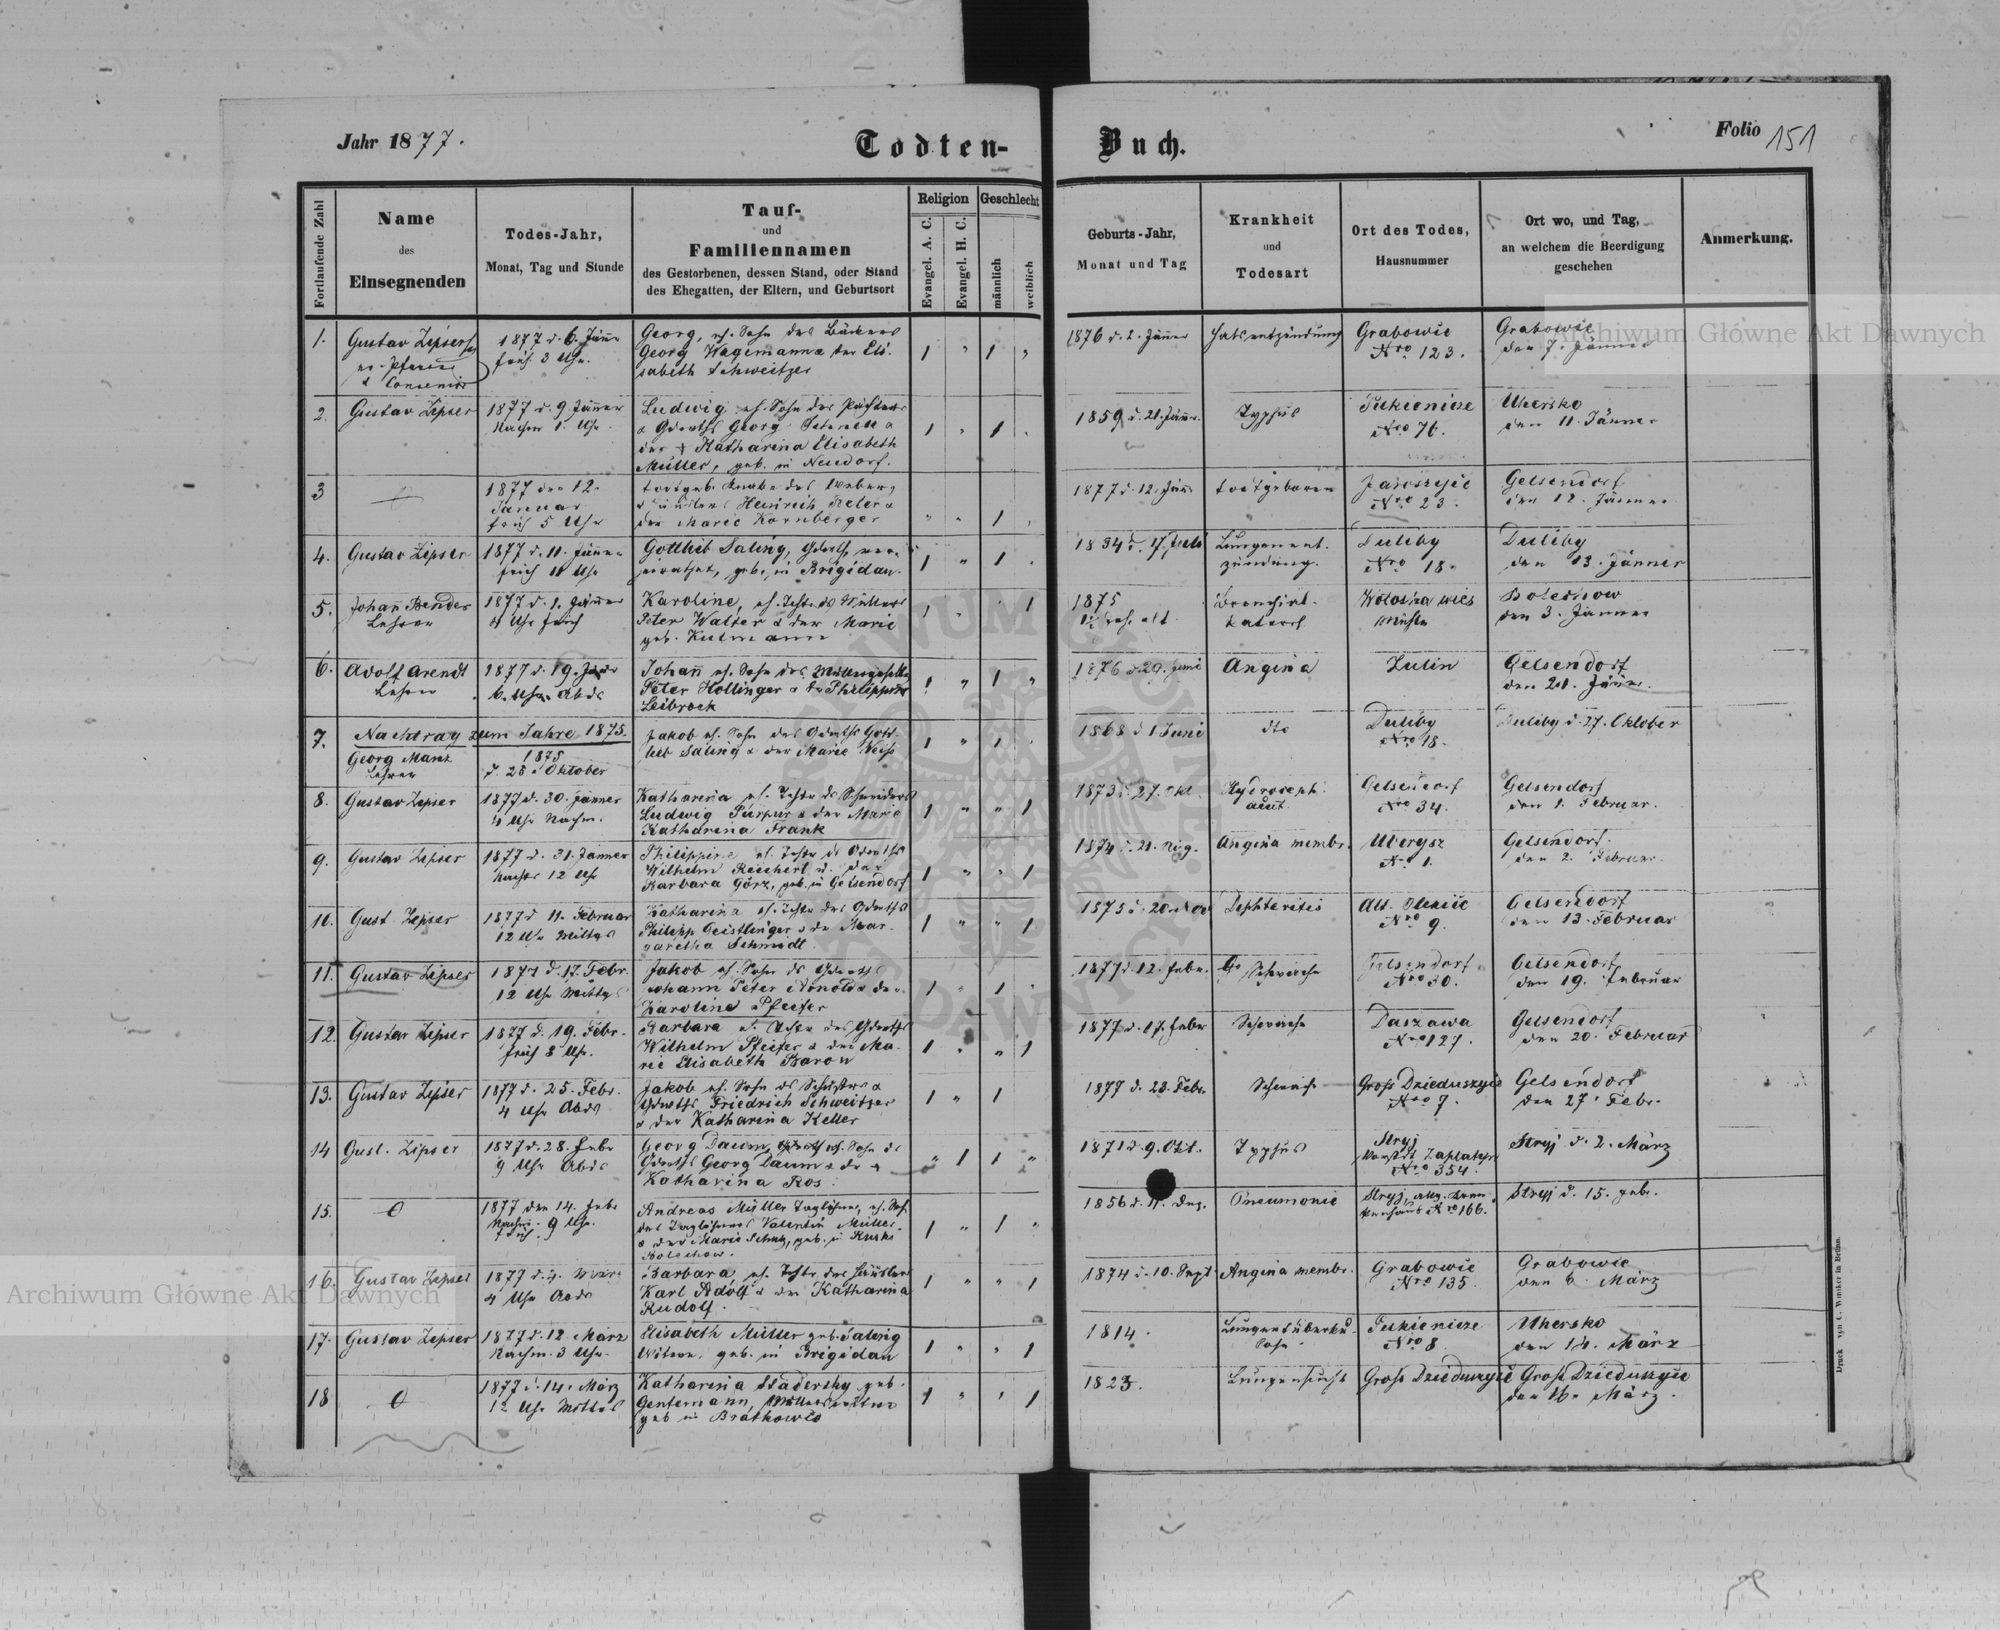 Jahr 1877.
Todten-
Buch.
Folio 151
Fortlaufende Zahl
Name
des
Einsegnenden
Todes-Jahr,
Monat, Tag und Stunde
Tauf-
und
Familiennamen
des Gestorbenen, dessen Stand, oder Stand
des Ehegatten, der Eltern, und Geburtsort
Religion
Evangel. A. C.
Evangel. H. C.
Geschlecht
männlich
weiblich
Geburts-Jahr,
Monat und Tag
Krankheit
und
Todesart
Ort des Todes,
Hausnummer
Ort wo, und Tag,
an welchem die Beerdigung
geschehen
Anmerkung.
1.
Gustav Zipser
ev. Pfarrer
& Consenior
1877 d. 6. Jänner
früh 3 Uhr.
Georg, eh. Sohn des
Georg Wagemann & der Eli-
sabeth Schweitzer
1 " 1 "
1876 d. 2. Jänner
Halsentzündung
Grabowie
Nro 123.
Grabowie
den 7. Jänner
2.
Gustav Zipser
1877 d. 9. Jänner
Nachm 1. Uhr.
Ludwig eh. Sohn des Pächters
& Gdwths Georg
der † Katharina Elisabeth
Müller, geb. in Neudorf.
1 " 1
1859 d. 21. Jänn.
Typhus
Nro 76.
Uhersko
den 11. Jänner
3
1877 den 12.
Januar
früh 5 Uhr
todtgeb. Knabe des Webers
Heinrich Peter &
der Marie Kornberger
" " 1
1877 d. 12. Jän.
todtgeboren
Nro 23.
Gelsendorf
den 12. Jänner
4.
Gustav Zipser
1877 d. 11. Jänner
früh 11 Uhr
Gottlieb Saling, Gdwth, ver-
geb. in Brigidau.
1 " 1
1834 d. 17. Juli
Lungenent-
zündung.
Duliby
Nro 18.
Duliby
den 13. Jänner
5.
Johann Bender
Lehrer
1877 d. 1. Jänner
4 Uhr früh
Karoline, eh. Tcht. ds Müllers
Peter Walter & der Marie
geb. Kulmann
1 " 1
1875
alt
Bronchial-
katarrh
Mühle
Bolechow
den 3. Jänner
6.
Adolf Arendt
Lehrer
1877 d. 19. Jänner
6. Uhr Abds
Johann eh. Sohn des Müllergesellen
Peter Hollinger & der Philippine
Leibrock
1 " 1 "
1876 d. 29. Juni
Angina
Zulin
Gelsendorf
den 21. Jänner.
7.
Nachtrag zum Jahre 1875.
Georg Manz
Lehrer
1875
d. 25. Oktober
Jakob eh. Sohn des Gdwths Gott-
lieb Saling & der Marie Weiss
1 " 1
1868 d 1 Juni
dto
Duliby
Nro 18.
Duliby d. 27. Oktober
8.
Gustav Zipser
1877 d. 30. Jänner
4 Uhr Nachm.
Katharina eh. Tchtr ds Schneiders
Ludwig Purpur & der Marie
Katharina Frank
1 " " 1
1873 d. 27. Okt.
Hydroceph.
acut.
Gelsendorf
Nro 34.
Gelsendorf
den 1. Februar.
9.
Gustav Zipser
1877 d. 31. Jänner
Nachts 12 Uhr
Philippine eh. Tchtr ds Gdwths
Wilhelm Reichert u. der
Barbara Görz, geb. in Gelsendorf
1 " " 1
1874 d. 21. Aug.
Angina membr.
Nro 1.
Gelsendorf.
den 2. Februar.
10.
Gust. Zipser
1877 d. 11. Februar
12 Uhr Mittgs
Katharina eh. Tchtr des Gdwths
Philipp Geistlinger & der Mar-
garetha Schmidt
1 " " 1
1875 d. 20. Nov
Diphteritis
Alt. Oleksic
Nro 9.
Gelsendorf
den 13. Februar
11.
Gustav Zipser
1877 d. 17. Febr.
12 Uhr Mittgs
Jakob eh. Sohn ds Gdwths
Johann Peter Arnold & der
Karoline Pfeifer
1 " 1
1877 d. 12. Febr.
Schwäche
Gelsendorf
Nro 30.
Gelsendorf
den 19. Februar
12.
Gustav Zipser
1877 d. 19. Febr.
früh 8 Uhr.
Barbara eh. Tchtr des Gdwths
Wilhelm Pfeifer & der Ma-
rie Elisabeth Baron
1 " " 1
1877 d. 17. Febr
Schwäche
Daszawa
Nro 127.
Gelsendorf
den 20. Februar
13.
Gustav Zipser
1877 d. 25. Febr.
4 Uhr Abds
Jakob eh. Sohn ds Schusters &
Gdwths Friedrich Schweitzer
& der Katharina Keller
1 " 1
1877 d. 23. Febr.
Schwäche
Gross Dzieduszyce
Nro 7.
Gelsendorf
den 27. Febr.
14
Gust. Zipser
1877 d. 28. Febr
9 Uhr Abds
Georg Daum, eh. Sohn ds
Gdwths Georg Daum & der
Katharina Ros.
" 1 1 "
1871 d. 9. Okt.
Typhus
Stryj
Vorstdt Zaplatyn
Nro 354.
Stryj d. 2. März
15.
1877 den 14. Febr
früh. 9 Uhr.
Andreas Müller Taglöhner, eh. Soh.
des Taglöhners Valentin Müller
& der Marie Schutz, geb. in
Bolechow.
1 " 1 "
1856 d. 11. Dez.
Pneumonie
Stryj, allg. Kran-
kenhaus Nro 166.
Stryj d. 15. Febr.
16.
Gustav Zipser
1877 d. 4. März
4 Uhr Abds
Barbara, eh. Tchtr des Häuslers
Karl Adolf & der Katharina
Rudolf.
1 " " 1
1874 d. 10. Sept
Angina membr.
Grabowie
Nro 135.
Grabowie
den 6. März
17.
Gustav Zipser
1877 d. 12. März
Nachm. 3 Uhr.
Elisabeth Müller geb. Saling
Witwe, geb. in Brigidau
1 " " 1
1814.
Lungentuberku-
lose
Nro 8
Uhersko
den 14. März
18
1877 d. 14. März
12 Uhr Mittags
Katharina Stadersky geb.
Gentemann,
geb in Bratkowce
1 " " 1
1823.
Lungensucht
Gross Dzieduszyce
Gross Dzieduszyce
den 16. März.
Druck von C. Winiker in Brünn.
Archiwum Główne Akt Dawnych
Archiwum Główne Akt Dawnych